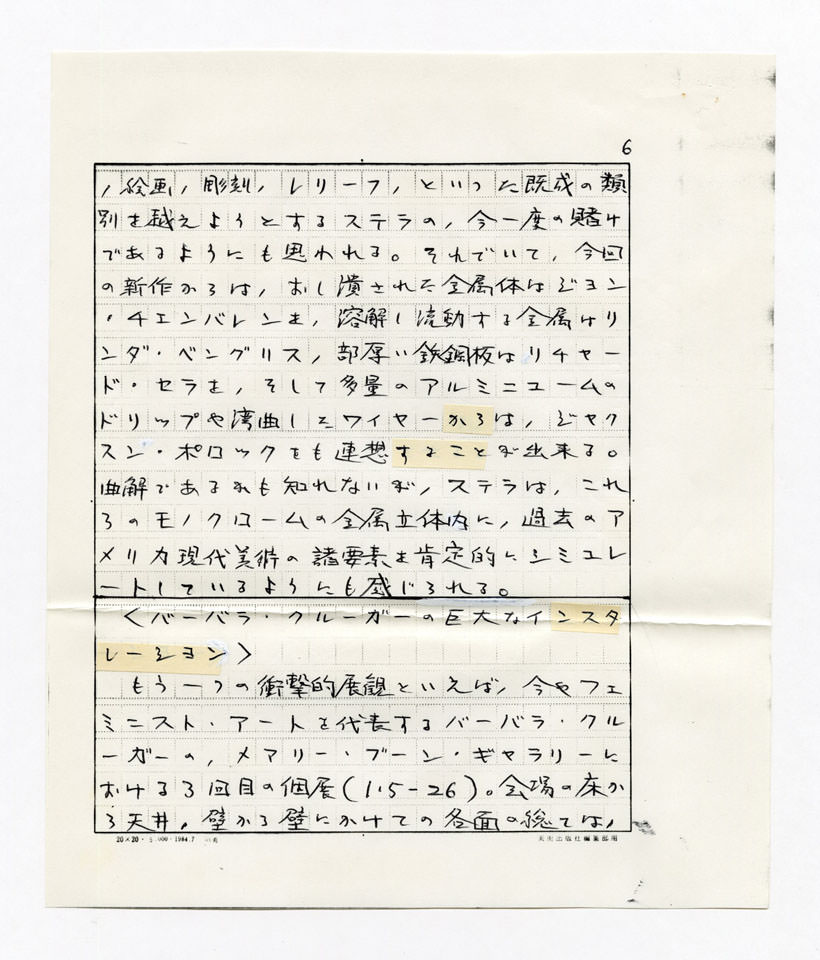 6
，絵画，彫刻，レリーフ，といった既成の類
別を越えようとするステラの，今一度の賭け
であるようにも思われる。それでいて，今回
の新作からは，おし潰された金属体はジョン
・チェンバレンを，溶解し流動する金属はリ
ンダ・ベングリス，部厚い鉄鋼板はリチャー
ド・セラを，そして多量のアルミニュームの
ドリップや湾曲したワイヤーからは，ジャク
スン・ポロックをも連想することが出来る。
曲解であるかも知れないが，ステラは，これ
らのモノクロームの金属立体内に，過去のア
メリカ現代美術の諸要素を肯定的にシミュレ
ートしているようにも感じられる。
＜バーバラ・クルーガーの巨大なインスタ
レーション＞
もう一つの衝撃的展観といえば，今やフェ
ミニスト・アートを代表するバーバラ・クル
ーガーの，メアリー・ブーン・ギャラリーに
おける3回目の個展(1.5-26)。会場の床か
ら天井，壁から壁にかけての各面の総ては，
20×20・5.000・1984.7
美術出版社編集部用